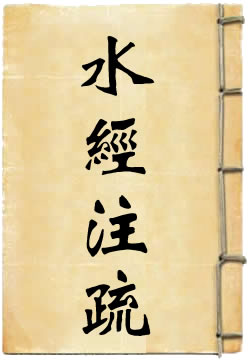 水經注疏